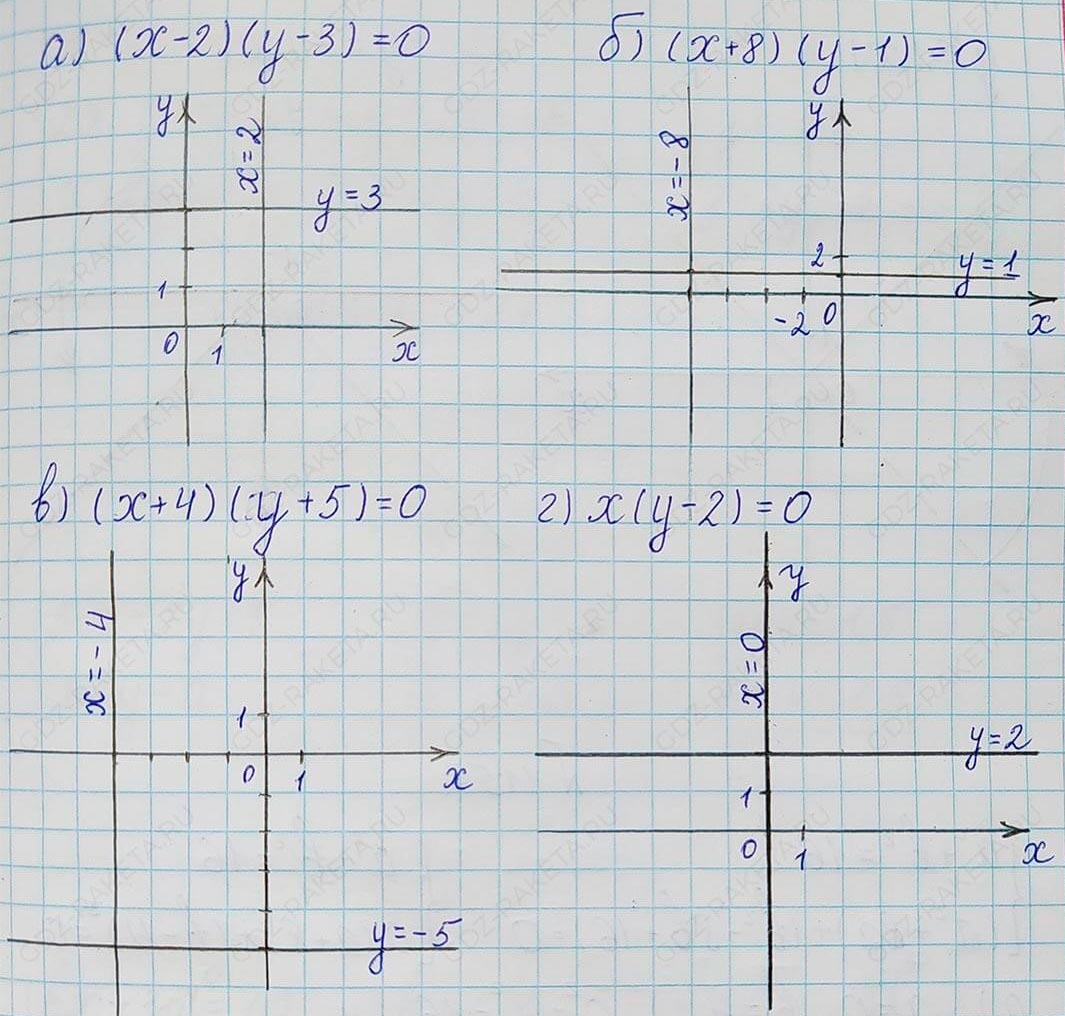 а) (x-2)(y-3)=0
y
x=2
y=3
1
0
1
x
б) (x+8)(y-1)=0
y
x=-8
2
y=1
-2
0
x
в) (x+4)(y+5)=0
y
x=-4
1
0
1
x
y=-5
г) x(y-2)=0
y
x=0
y=2
1
0
1
x
GDZ-RAKETA.RU